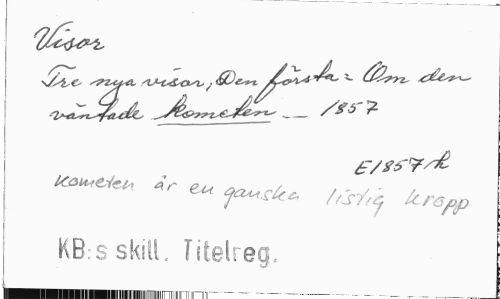 Visor
Tre nya visor, Den första: Om den
väntade kometen — 1857
E1857h
kometen är en ganska listig kropp
KB:s skill. Titelreg.